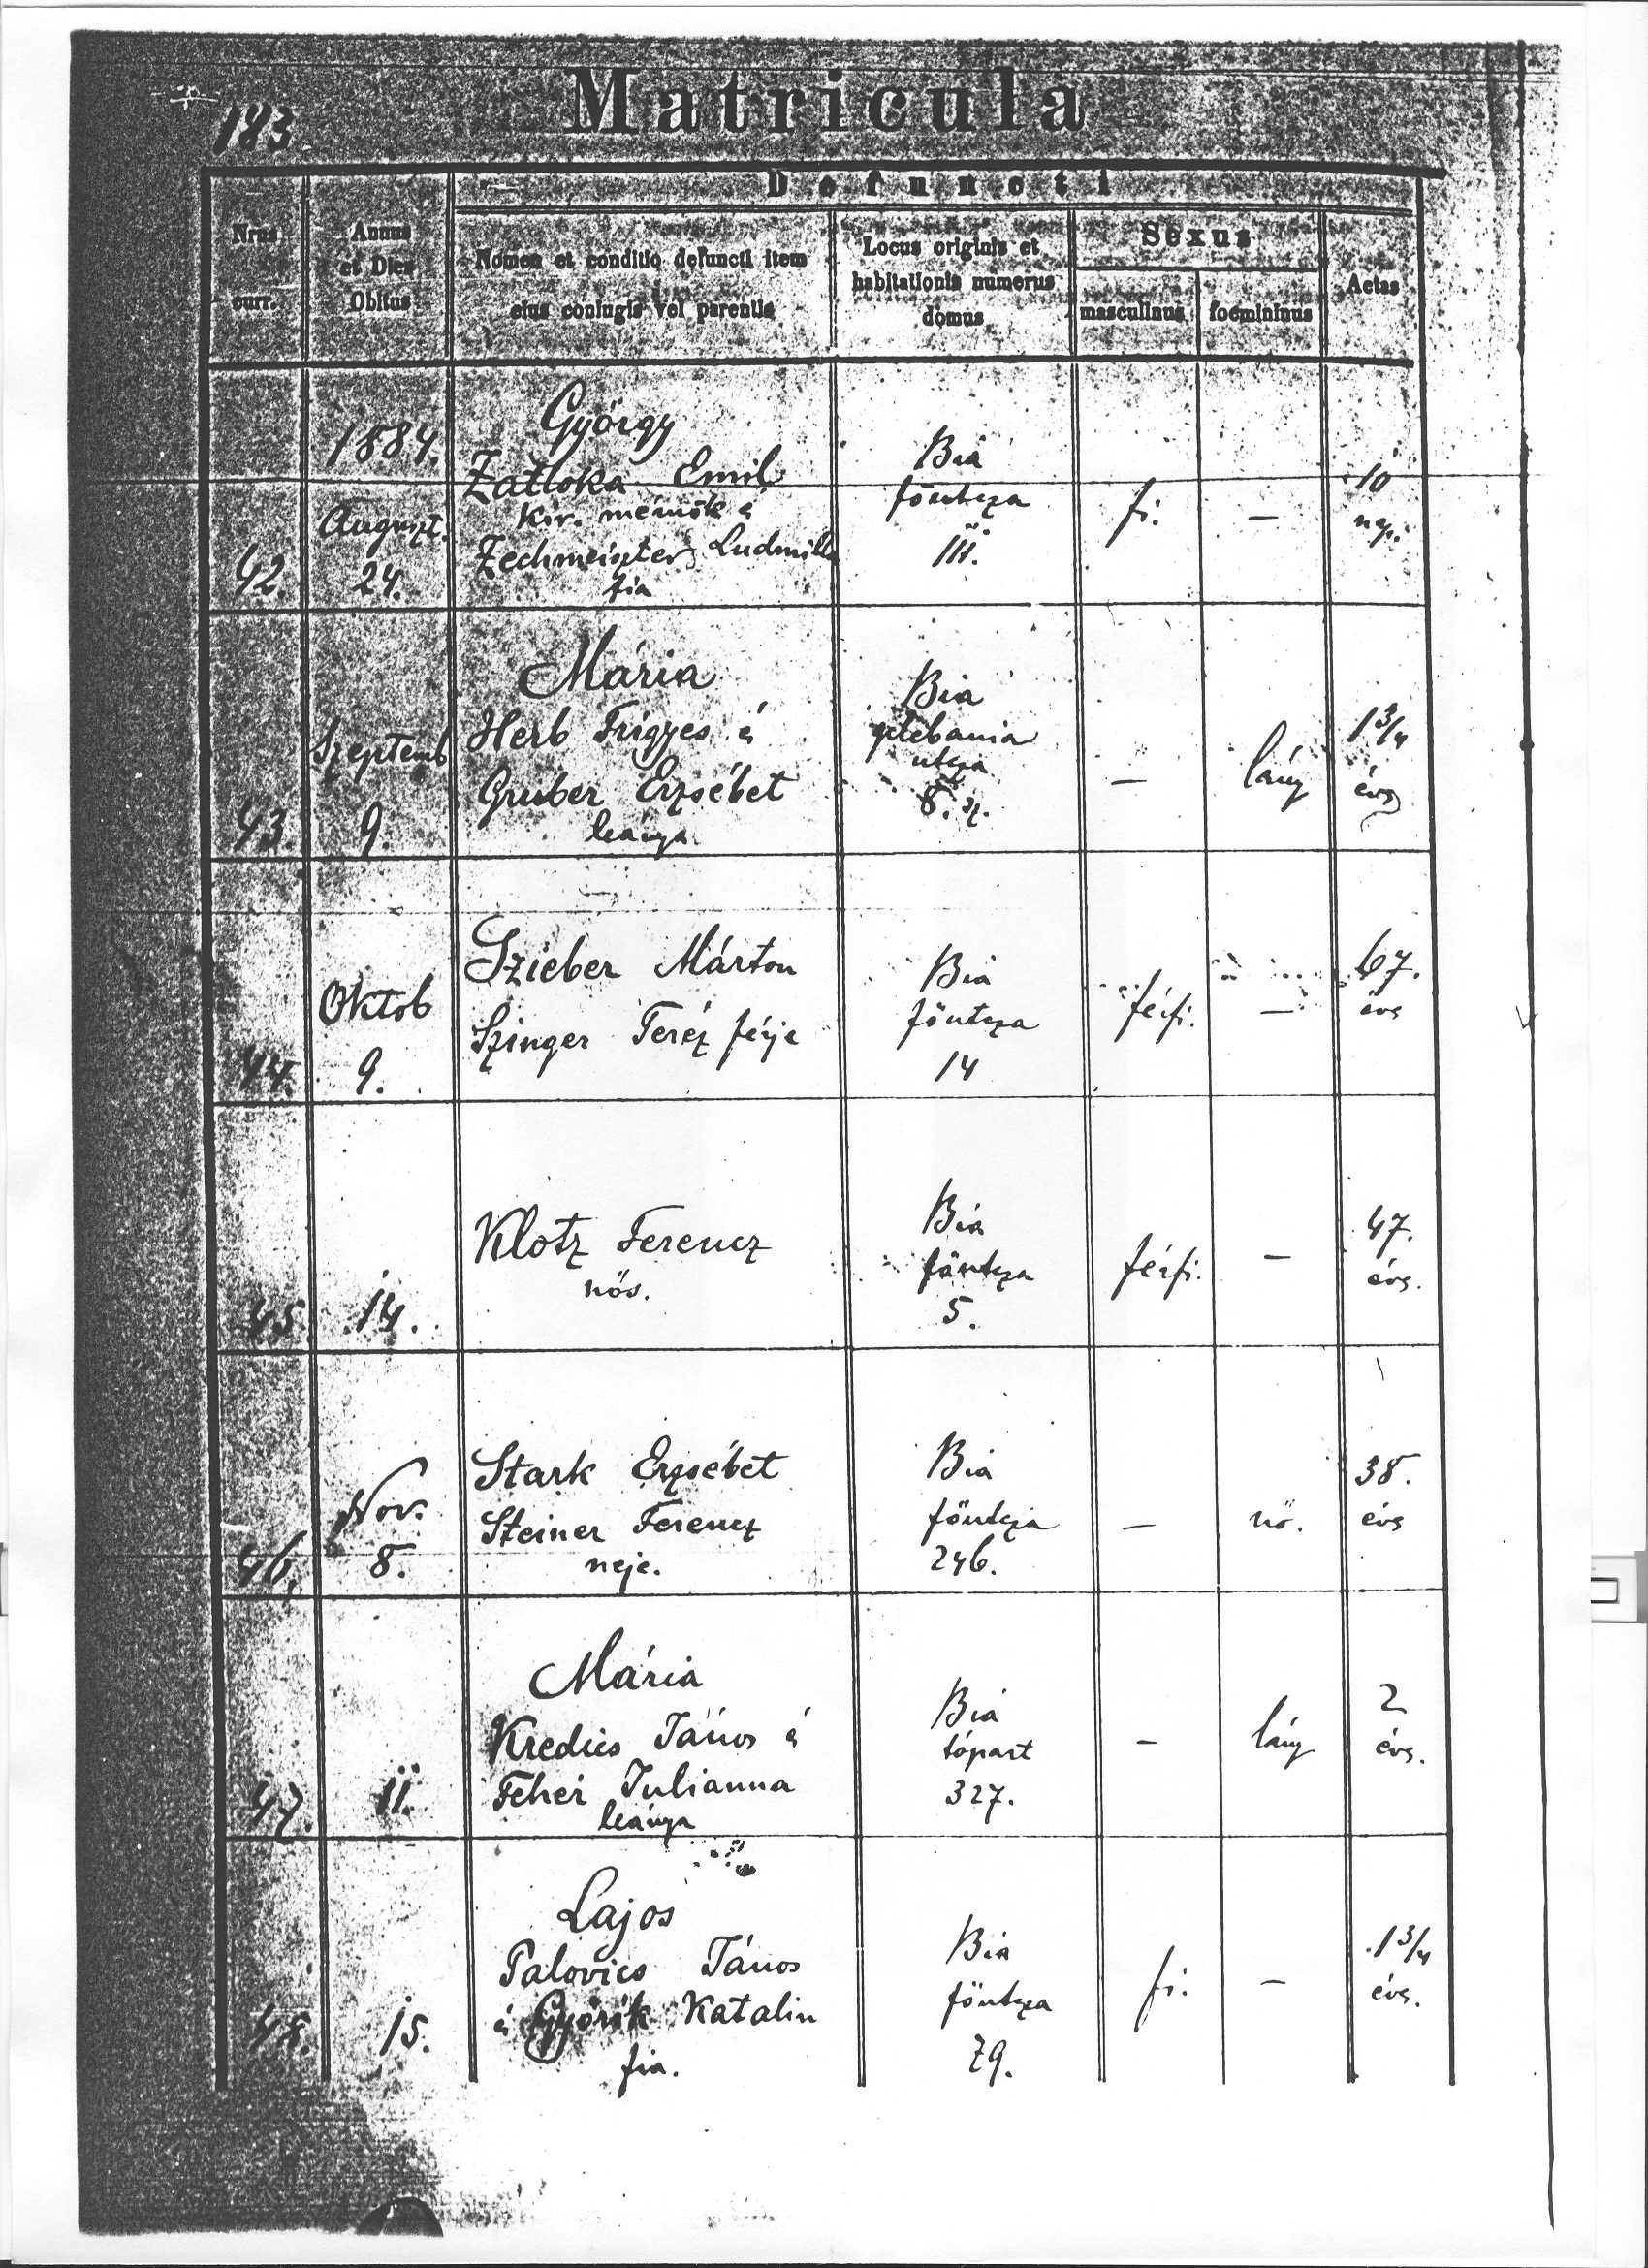 183.
Matricula
Defuncti
Nrus
curr.
Annus
et Dies
Obitus
Nomen et conditio defuncti item
eius coniugis vel parentis
Locus originis et
habitationis numerus
domus
Sexus
masculinus
foemininus
Aetas
42.
1884.
August.
24.
György
Zatloka Emil
kir. mérnök é
Zechmeiszter Ludmilla
fia
Bia
főutcza
111.
fi.
—
10
nap.
43.
Szeptemb
9.
Mária
Herb Frigyes é
Gruber Erzsébet
leánya
Bia
plebania
utcza
8. sz.
—
lány
1 3/4
éves
44.
Oktob
9.
Szieber Márton
Szinger Teréz férje
Bia
főutcza
14
férfi.
—
67.
éves
45.
14.
Klotz Ferencz
nős.
Bia
főutcza
5.
férfi.
—
47.
éves.
46.
Nov.
8.
Stark Erzsébet
Steiner Ferencz
neje.
Bia
főutcza
246.
—
nő.
38.
éves
47.
11.
Mária
Kredics János é
Fehér Julianna
leánya
Bia
tópart
327.
—
lány
2
éves.
48.
15.
Lajos
Palovics János
é Györik Katalin
fia.
Bia
főutcza
79.
fi.
—
1 3/4
éves.